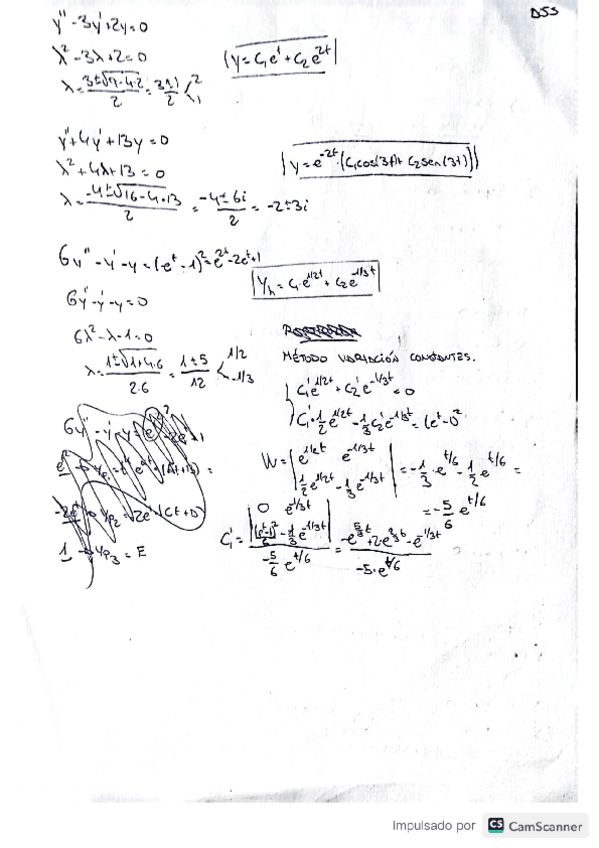 DSS
y'' - 3y' + 2y = 0
λ² - 3λ + 2 = 0
λ = (3 ± √(9 - 4·2))/2 = (3 ± 1)/2 < 2, 1
y = C₁e^t + C₂e^{2t}
y'' + 4y' + 13y = 0
λ² + 4λ + 13 = 0
λ = (-4 ± √(16 - 4·13))/2 = (-4 ± 6i)/2 = -2 ± 3i
y = e^{-2t}·(C₁cos(3t) + C₂sen(3t))
6y'' - y' - y = (e^t - 1)² = e^{2t} - 2e^t + 1
6y'' - y' - y = 0
y_h = C₁e^{1/2t} + C₂e^{-1/3t}
6λ² - λ - 1 = 0
λ = (1 ± √(1 + 4·6))/(2·6) = (1 ± 5)/12 < 1/2, -1/3
MÉTODO VARIACIÓN CONSTANTES.
C₁'e^{1/2t} + C₂'e^{-1/3t} = 0
C₁'·1/2 e^{1/2t} - 1/3 C₂'e^{-1/3t} = (e^t - 1)²
6y'' - y' - y =
W = | e^{1/2t} e^{-1/3t} |
| 1/2 e^{1/2t} -1/3 e^{-1/3t} | = -1/3·e^{t/6} - 1/2 e^{t/6} =
= -5/6 e^{t/6}
-2e^t → y_{P2} = 2e^t·(Ct + D)
1 → y_{P3} = E
C₁' = | 0 e^{-1/3t} |
| (e^t-1)²/6 -1/3 e^{-1/3t} |
/ -5/6 e^{t/6} = (-e^{5/3t} + 2·e^{2/3t} - e^{-1/3t}) / (-5·e^{t/6})
Impulsado por CS CamScanner